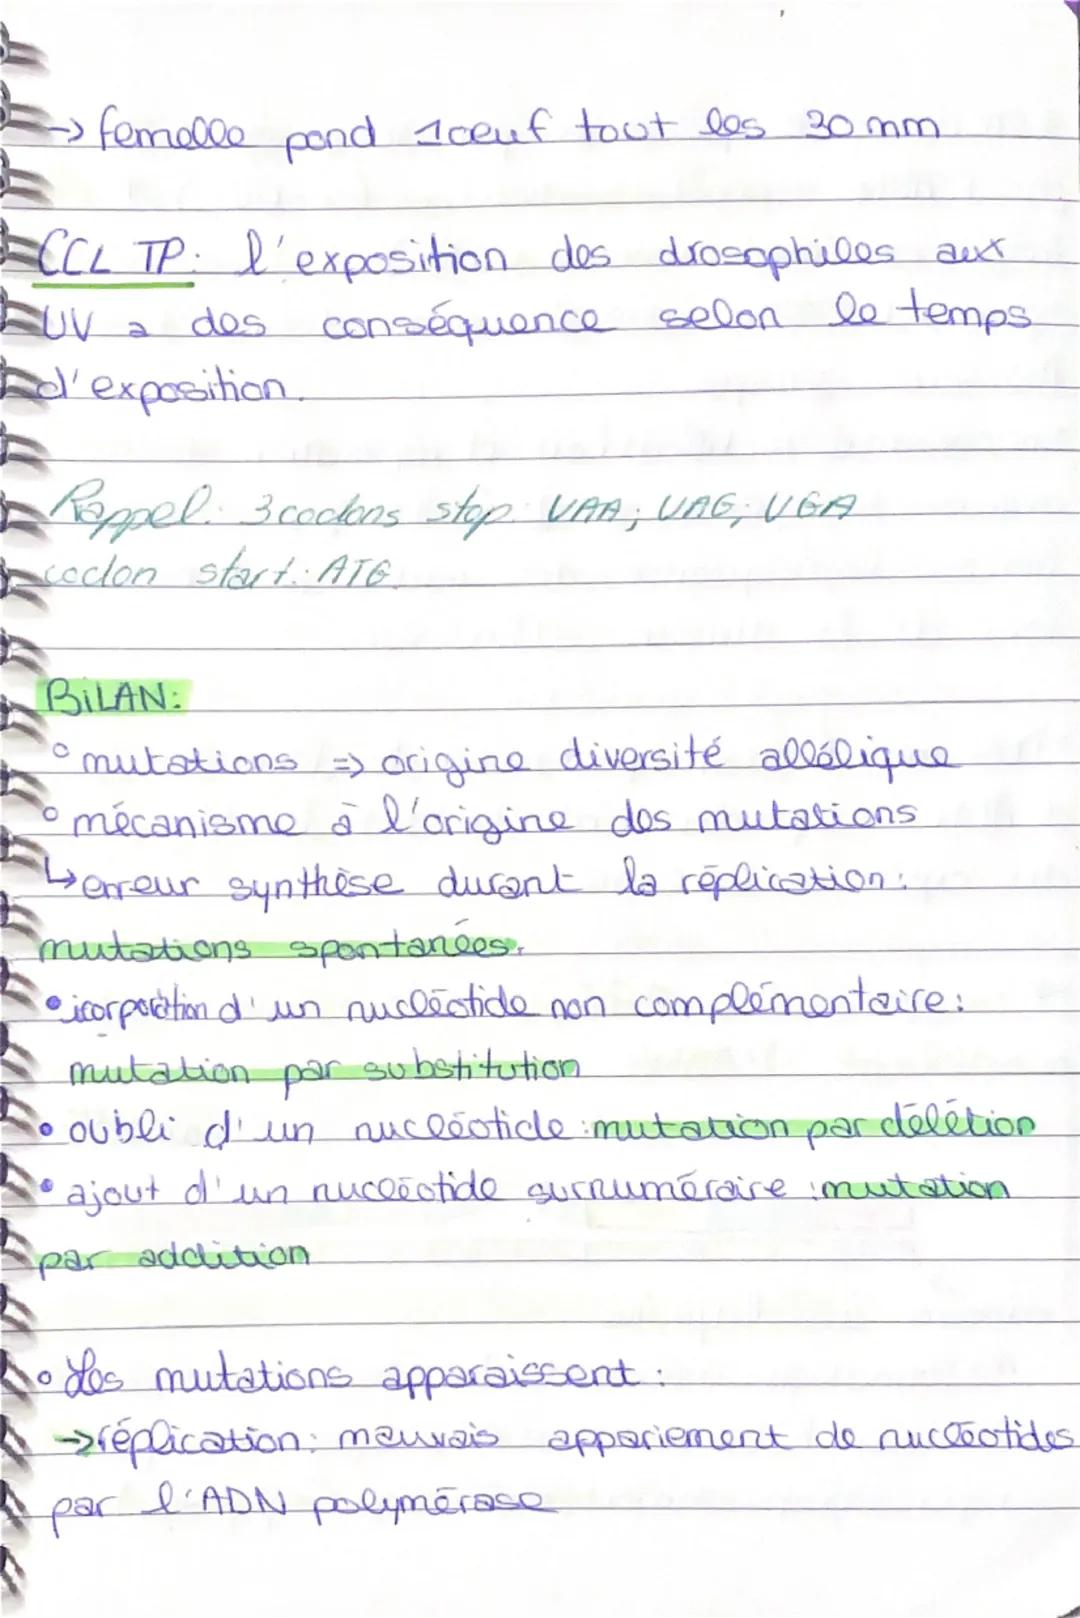 → femelle pond 1 oeuf tout les 30 mm
CCL TP: l'exposition des drosophiles aux
UV a des conséquence selon le temps
d'exposition.
Rappel: 3 codons stop: UAA; UAG; UGA
codon start: ATG
BiLAN:
° mutations => origine diversité allélique
° mécanisme à l'origine des mutations
↳ erreur synthèse durant la réplication:
mutations spontanées.
• icorporation d'un nucléotide non complémentaire:
mutation par substitution
• oubli d'un nucléotide: mutation par délétion
• ajout d'un nucléotide surnuméraire: mutation
par addition
° Les mutations apparaissent:
→ réplication: mauvais appariement de nucléotides
par l'ADN polymérase